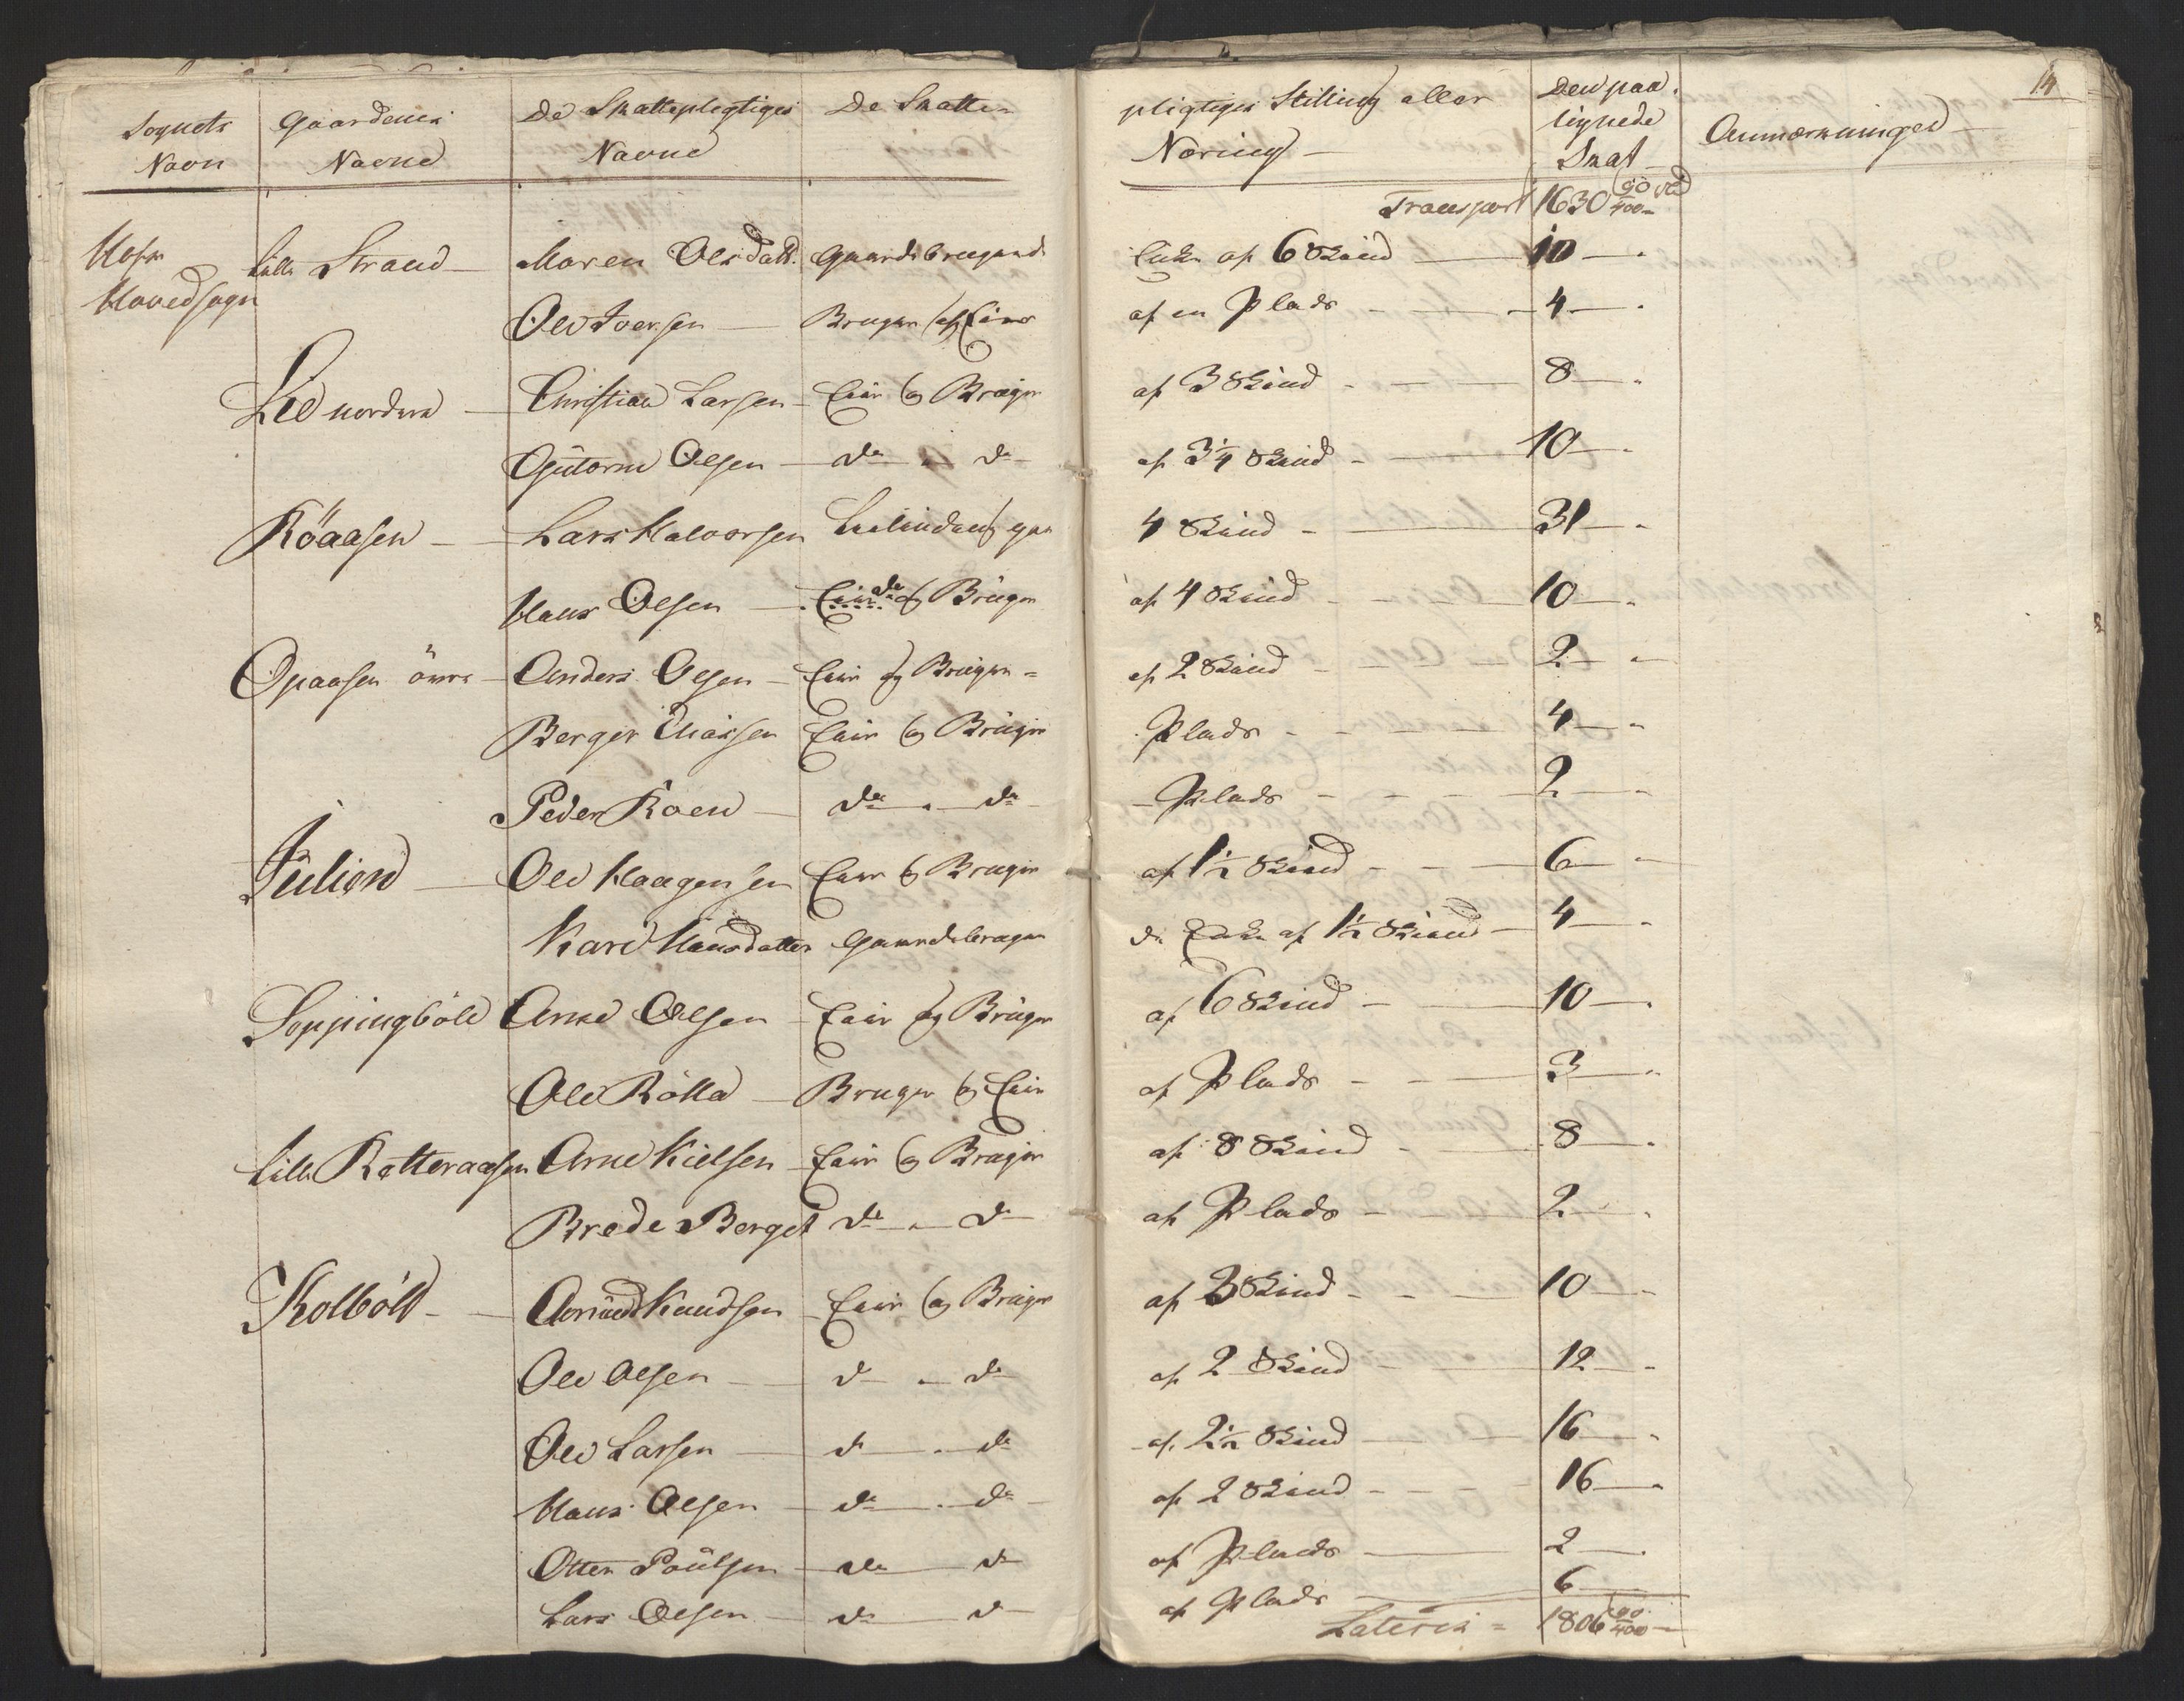 Sognets Navn | Gaardenes Navne | De Skatteplegtiges Navne | De Skatte- | pligtiges Stilling eller Næring | Den paa- lignede Skat | Anmærkninger | 14
Transport 1630 90/400
Hofs Hovedsogn | Lille Strand | Maren Olsdatt. | Gaardsbrugende | Enke af 6 Skind | 10
Ole Iversen | Bruger og Eier | af en Plads | 4
Lie nordere | Christian Larsen | Eier og Bruger | af 3 Skind | 8
Gutorm Olsen | do do | af 3 1/4 Skind | 10
Röaasen | Lars Halvorsen | 4 Skind | 31
Hans Olsen | do og Bruger | af 4 Skind | 10
Opaasen övre | Anders Olsen | Eier og Bruger | af 2 Skind | 2
Berger Eliassen | Eier og Bruger | Plads | 4
Peder Roen | do do | Plads | 2
Julien | Ole Haagensen | Eier og Bruger | af 1 1/2 Skind | 6
Kari Hansdatter | Gaardsbrugen | de Enke af 1 1/2 Skind | 4
Soppingböle | Arne Olsen | Eier og Bruger | af 6 Skind | 10
Ole Rölla | Bruger og Eier | af Plads | 3
Lille Ratteraasen | Arne Kielsen | Eier og Bruger | af 8 Skind | 8
Brede Berget | do do | af Plads | 2
Kolböll | Amund Knudsen | Eier og Bruger | af 3 Skind | 10
Ole Olsen | do do | af 2 Skind | 12
Ole Larsen | do do | af 2 1/2 Skind | 16
Hans Olsen | do do | af 2 Skind | 16
Otter Poulsen | do do | af Plads | 2
Lars Olsen | do do | af Plads | 6
Lateris 1806 90/400